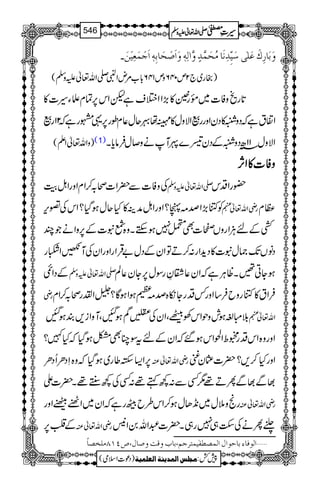 سیرتِ مصطفیٰ صلی اللہ تعالیٰ علیہ وسلم 546
وَبَارِكْ عَلٰى سَيِّدِنَا مُحَمَّدٍ وَّاٰلِهٖ وَاَصْحَابِهٖ اَجْمَعِيْنَ۔
(بخاری ج۲ ص۶۴۰ و ص۶۴۱ باب مرض النبی صلی اللہ تعالیٰ علیہ وسلم)
تاریخ وفات میں مؤرخین کا بڑا اختلاف ہے لیکن اس پر تمام علماء سیرت کا
اتفاق ہے کہ دوشنبہ کا دن اور ربیع الاول کا مہینہ تھا بہر حال عام طور پر یہی مشہور ہے کہ ۱۲ ربیع
الاول ۱۱ھ دوشنبہ کے دن تیسرے پہر آپ نے وصال فرمایا۔(۱) (واللہ تعالیٰ اعلم)
وفات کا اثر
حضور اقدس صلی اللہ تعالیٰ علیہ وسلم کی وفات سے حضرات صحابہ کرام اور اہل بیت
عظام رضی اللہ تعالیٰ عنہم کو کتنا بڑا صدمہ پہنچا؟ اور اہل مدینہ کا کیا حال ہو گیا؟ اس کی تصویر
کشی کے لئے ہزاروں صفحات بھی متحمل نہیں ہو سکتے۔ وہ شمع نبوت کے پروانے جو چند
دنوں تک جمال نبوت کا دیدار نہ کرتے تو ان کے دل بے قرار اور ان کی آنکھیں اشکبار
ہو جاتی تھیں۔ ظاہر ہے کہ ان عاشقان رسول پر جان عالم صلی اللہ تعالیٰ علیہ وسلم کے دائمی
فراق کا کتنا روح فرسا اور کس قدر جانکاہ صدمہ عظیم ہوا ہوگا؟ جلیل القدر صحابہ کرام رضی
اللہ تعالیٰ عنہم بلا مبالغہ ہوش و حواس کھو بیٹھے، ان کی عقلیں گم ہو گئیں، آوازیں بند ہو گئیں
اور وہ اس قدر مخبوط الحواس ہو گئے کہ ان کے لئے یہ سوچنا بھی مشکل ہو گیا کہ کیا کہیں؟
اور کیا کریں؟ حضرت عثمان غنی رضی اللہ تعالیٰ عنہ پر ایسا سکتہ طاری ہو گیا کہ وہ اِدھر اُدھر
بھاگے بھاگے پھرتے تھے مگر کسی سے نہ کچھ کہتے تھے نہ کسی کی کچھ سنتے تھے۔ حضرت علی
رضی اللہ تعالیٰ عنہ رنج و ملال میں نڈھال ہو کر اس طرح بیٹھ رہے کہ ان میں اٹھنے بیٹھنے اور
چلنے پھرنے کی سکت ہی نہیں رہی۔ حضرت عبداللہ بن انیس رضی اللہ تعالیٰ عنہ کے قلب پر
الوفاء باحوال المصطفیٰ مترجم، باب وقت وصال، ص ۸۱۴ ملخصاً
پیش کش: مجلس المدینة العلمیة (دعوت اسلامی)